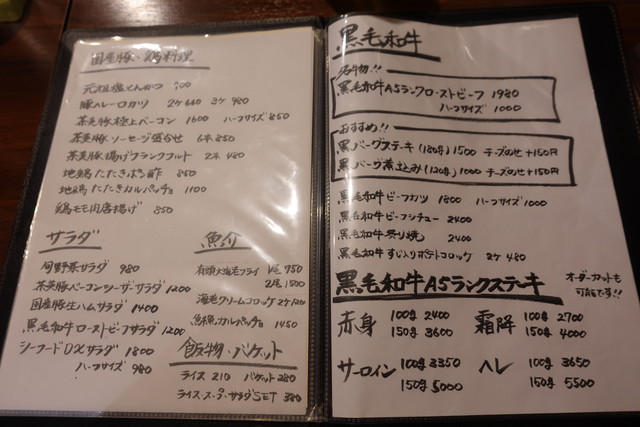 国産豚・鶏料理
元祖塩とんかつ 900
豚ヒレ一口カツ 2ケ640 3ケ980
茶美豚極上ベーコン 1600 ハーフサイズ850
茶美豚ソーセージ盛合せ 6本850
茶美豚揚げフランクフルト 2本480
地鶏たたきポン酢 850
地鶏たたきカルパッチョ 1100
鶏モモ肉唐揚げ 850
サラダ
旬野菜サラダ 980
茶美豚ベーコンシーザーサラダ 1200
国産豚生ハムサラダ 1400
黒毛和牛ローストビーフサラダ 1200
シーフードDXサラダ 1800
ハーフサイズ 980
魚介
有頭大海老フライ 1尾750
2尾1500
海老クリームコロッケ 2ケ
鮮魚カルパッチョ 1450
飯物・バケット
ライス 210 バケット 280
ライス・スープ・サラダSET 380
黒毛和牛
名物!!
黒毛和牛A5ランクローストビーフ 1980
ハーフサイズ 1000
おすすめ!!
黒バーグステーキ(180g) 1500 チーズのせ+150円
黒バーグ煮込み(120g) 1000 チーズのせ+150円
黒毛和牛ビーフカツ 1800 ハーフサイズ 1000
黒毛和牛ビーフシチュー 2400
黒毛和牛祭り焼 2400
黒毛和牛すじ入りポテトコロッケ 2ケ 480
黒毛和牛A5ランクステーキ
オーダーカットも
可能です!!
赤身 100g 2400
150g 3600
霜降 100g 2700
150g 4000
サーロイン 100g 3350
150g 5000
ヘレ 100g 3650
150g 5500